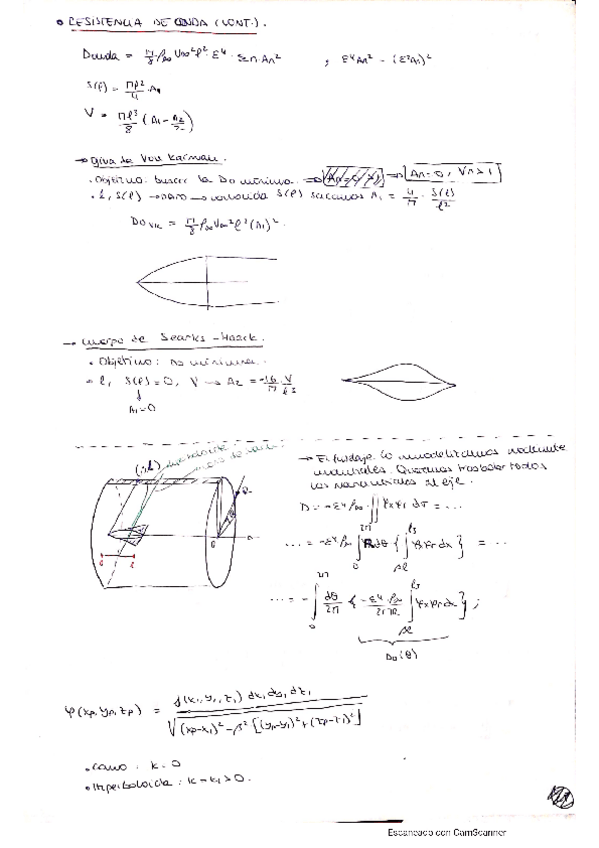 • RESISTENCIA DE ONDA (CONT.).
Donda = π/8 ρ∞ V∞² l² · ε⁴ · Σ n An² ; ε⁴An² = (ε²An)²
S(l) = πl²/4 · A₁
V = πl³/8 (A₁ - A₂/2)
→ Ojiva de Von Karman.
• Objetivo: buscar la Do mínima. → An=0, ∀n>1
• l, S(l) → dato → conocida S(l) sacamos A₁ = 4/π · S(l)/l²
Do VK = π/8 ρ∞ V∞² l² (A₁)².
→ Cuerpo de Searks-Haack.
• Objetivo: Do mínima.
• l, S(l)=0, V → A₂ = -16/π · V/l³
↓
A₁=0
→ El fuselaje lo modelizamos mediante
manantiales. Queremos trasladar todos
los manantiales al eje.
0
D = -ε⁴ρ∞ ∬ φx φr dσ = ...
... = -ε⁴ρ∞ ∫ R dθ { ∫ φx φr dx } = ...
... = - ∫ dθ/2π { -ε⁴ρ∞ 2πR ∫ φx φr dx } ;
Do(θ)
φ(xp, yp, zp) = f(x₁, y₁, z₁) dx₁ dy₁ dz₁ / √((xp-x₁)² - β²[(yp-y₁)² + (zp-z₁)²])
• Cono: k=0
• Hiperboloide: k=k₁>0.
Escaneado con CamScanner